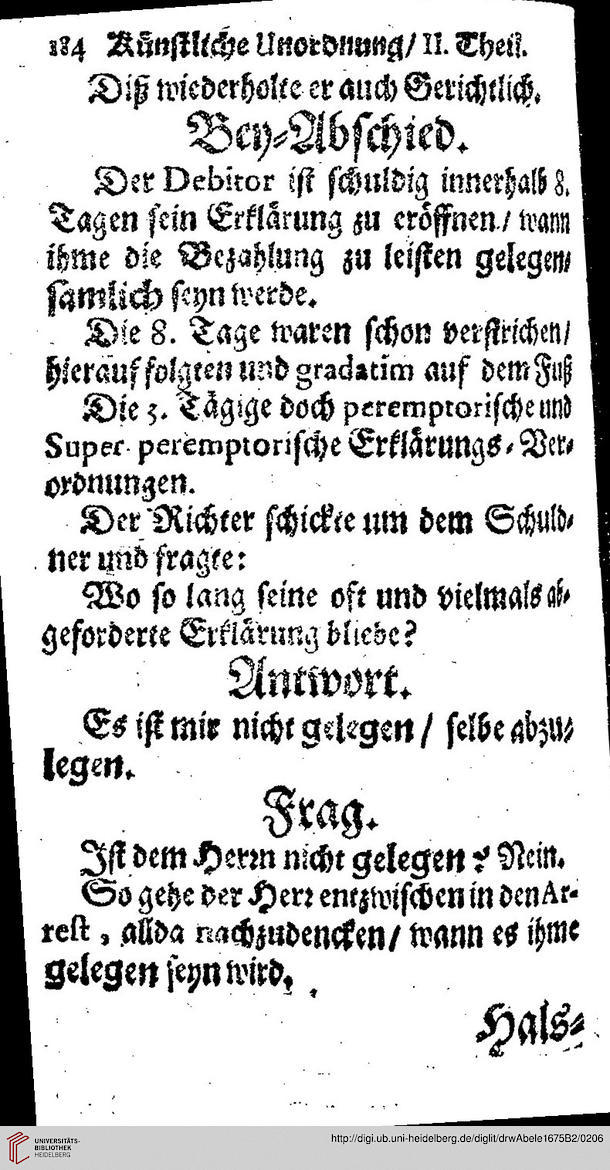 184 Künstliche Unordnung/ II. Theil.
Diß wiederholte er auch Gerichtlich.
Bey-Abschied.
Der Debitor ist schuldig innerhalb 8.
Tagen sein Erklärung zu eröffnen/ wann
ihme die Bezahlung zu leisten gelegen-
samlich seyn werde.
Die 8. Tage waren schon verstrichen/
hierauf folgten und gradatim auf dem Fuß
Die 3. Tägige doch peremptorische und
Super-peremptorische Erklärungs-Ver-
ordnungen.
Der Richter schickte um dem Schuld-
ner und fragte:
Wo so lang seine oft und vielmals ab-
geforderte Erklärung bliebe?
Antwort.
Es ist mir nicht gelegen/ selbe abzu-
legen.
Frag.
Ist dem Herrn nicht gelegen? Nein.
So gehe der Herr entzwischen in den Ar-
rest, allda nachzudencken/ wann es ihme
gelegen seyn wird.
Hals-
UNIVERSITÄTS-
BIBLIOTHEK
HEIDELBERG
http://digi.ub.uni-heidelberg.de/diglit/drwAbele1675B2/0206